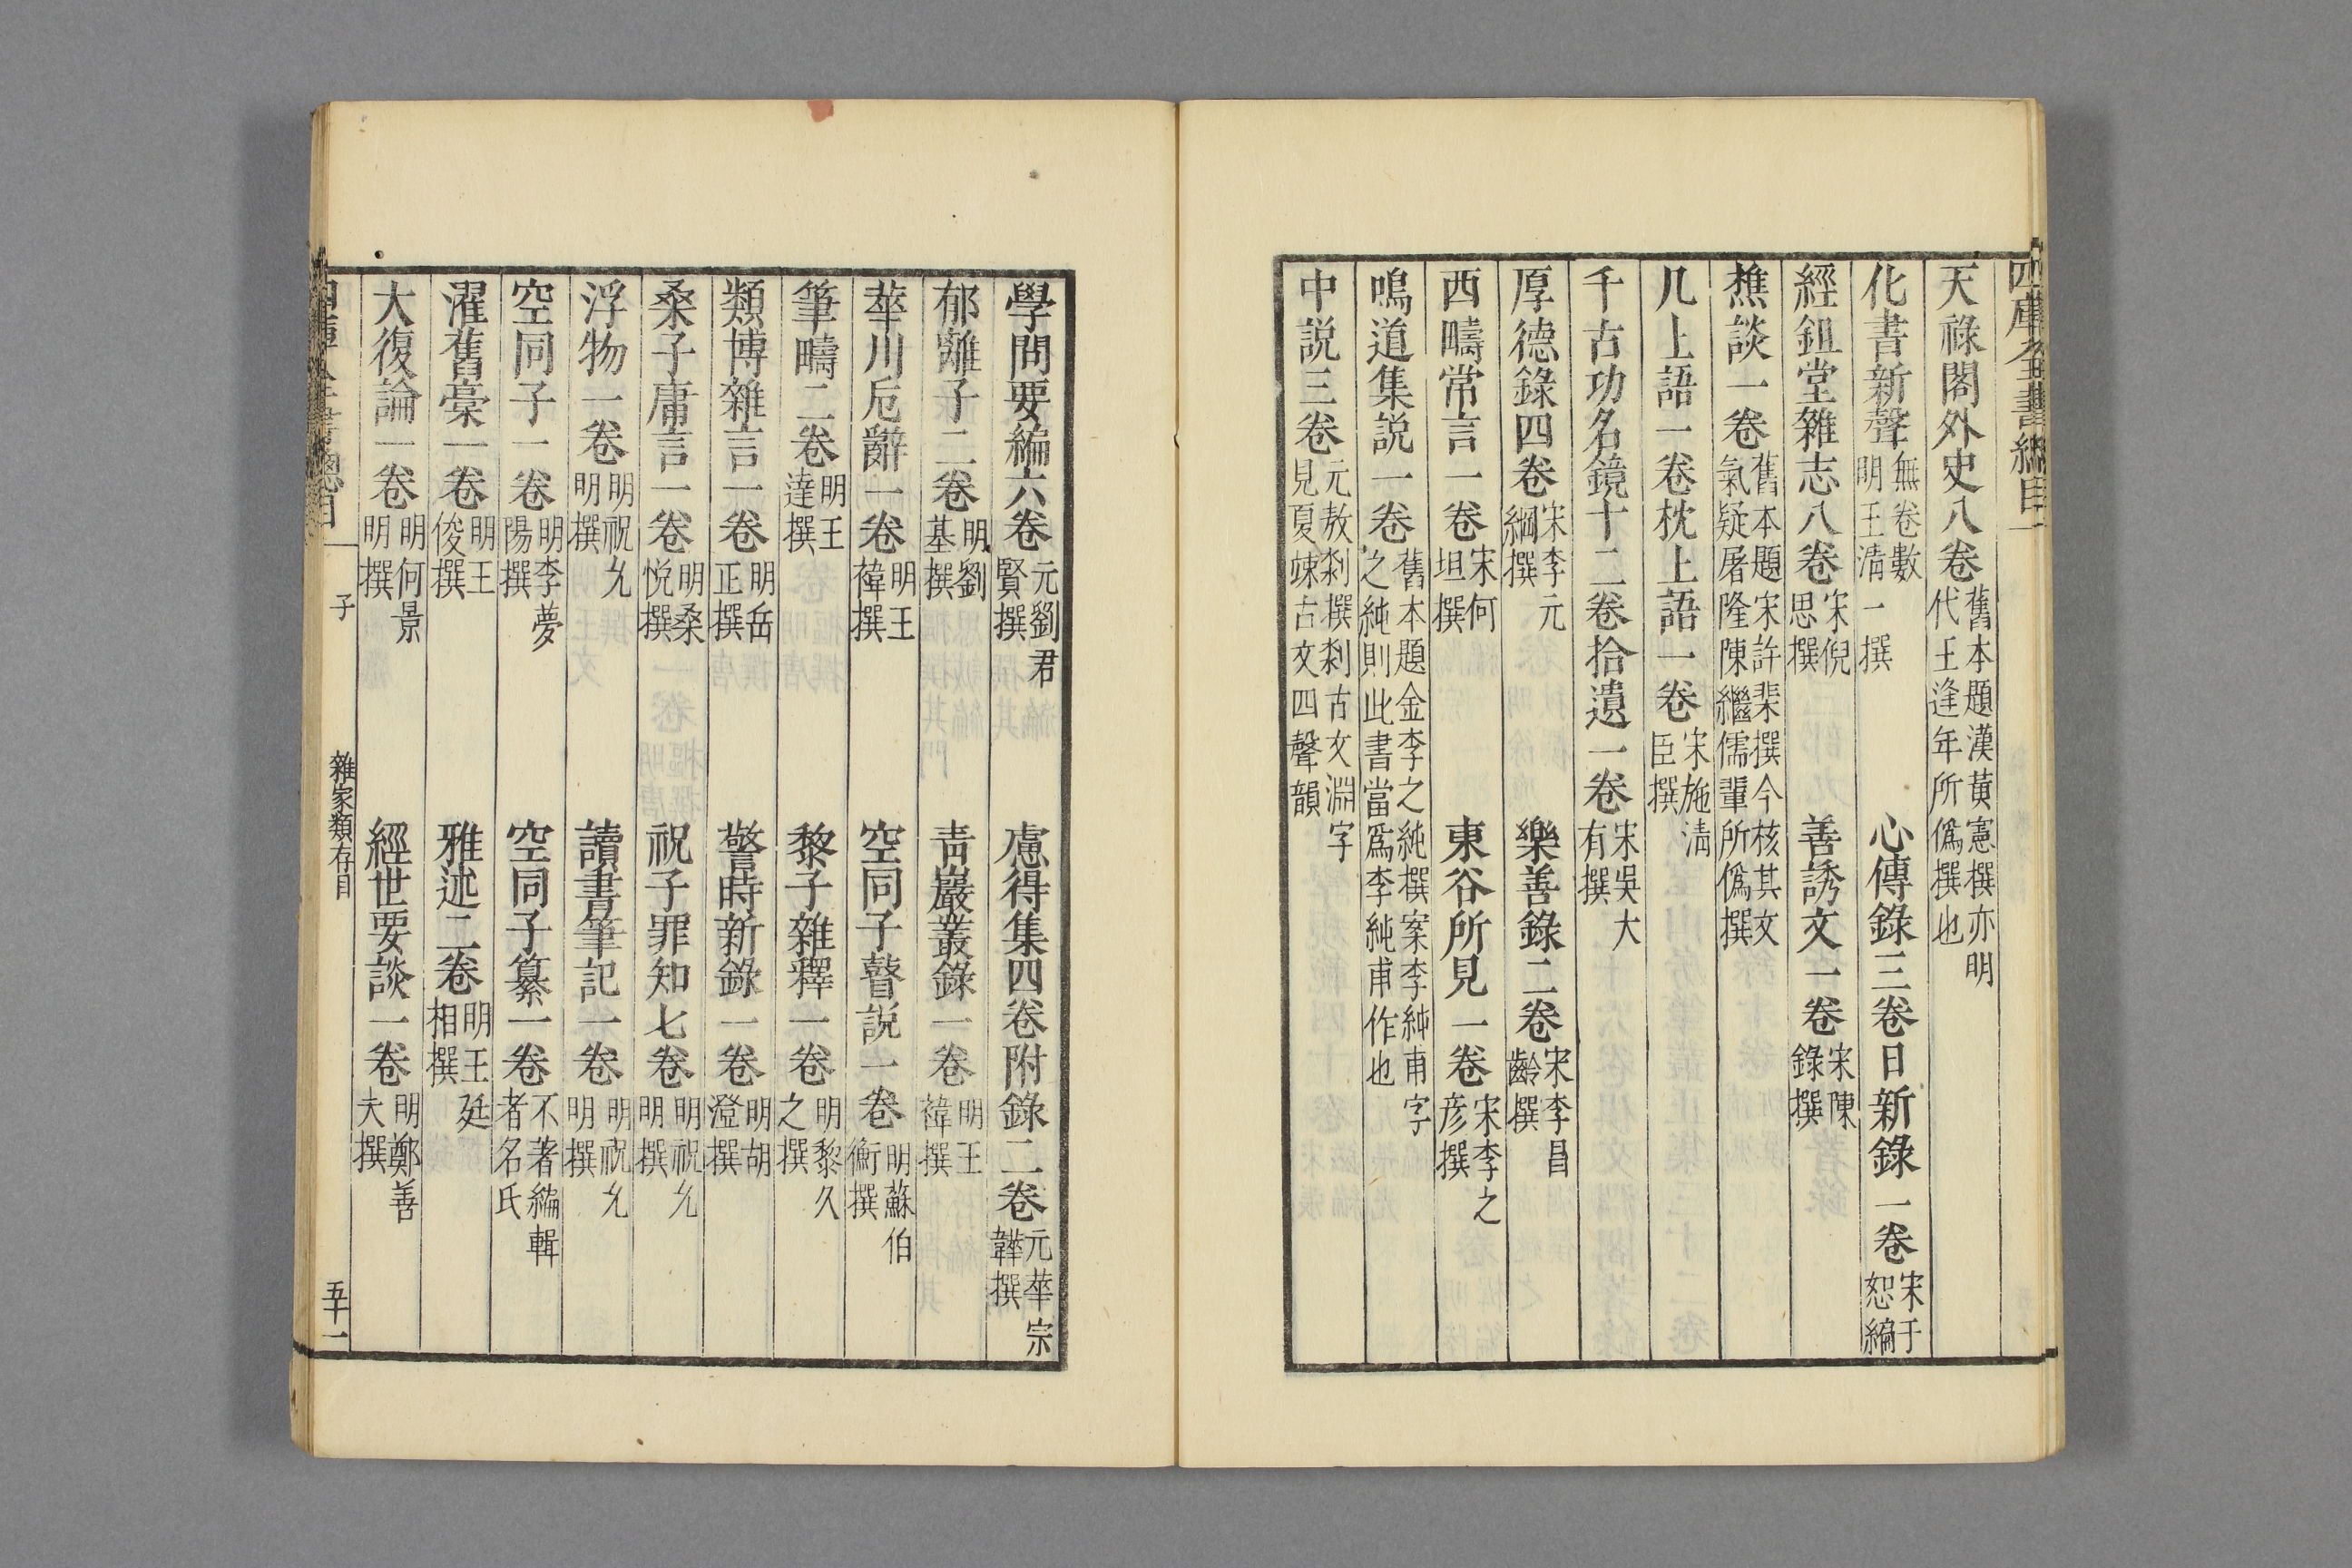 天祿閣外史八卷舊本題漢黃憲撰亦明代王逢年所僞撰也
化書新聲無卷數明王淸一撰 心傳錄三卷日新錄一卷宋于恕編
經鉏堂雜志八卷宋倪思撰 善誘文一卷宋陳錄撰
樵談一卷舊本題宋許棐撰今核其文氣疑屠隆陳繼儒輩所僞撰
几上語一卷枕上語一卷宋施淸臣撰
千古功名鏡十二卷拾遺一卷宋吳大有撰
厚德錄四卷宋李元綱撰 樂善錄二卷宋李昌齡撰
西疇常言一卷宋何坦撰 東谷所見一卷宋李之彦撰
鳴道集説一卷舊本題金李之純撰案李純甫字之純則此書當爲李純甫作也
中説三卷元敖剎撰剎古文淵字見夏竦古文四聲韻
學問要編六卷元劉君賢撰 慮得集四卷附錄二卷元華宗韡撰
郁離子二卷明劉基撰 靑巖叢錄一卷明王褘撰
華川卮辭一卷明王褘撰 空同子瞽説一卷明蘇伯衡撰
筆疇二卷明王達撰 黎子雜釋一卷明黎久之撰
類博雜言一卷明岳正撰 警時新錄一卷明胡澄撰
桑子庸言一卷明桑悅撰 祝子罪知七卷明祝允明撰
浮物一卷明祝允明撰 讀書筆記一卷明祝允明撰
空同子一卷明李夢陽撰 空同子纂一卷不著編輯者名氏
濯舊稾一卷明王俊撰 雅述二卷明王廷相撰
大復論一卷明何景明撰 經世要談一卷明鄭善夫撰
子 雜家類存目 五十一